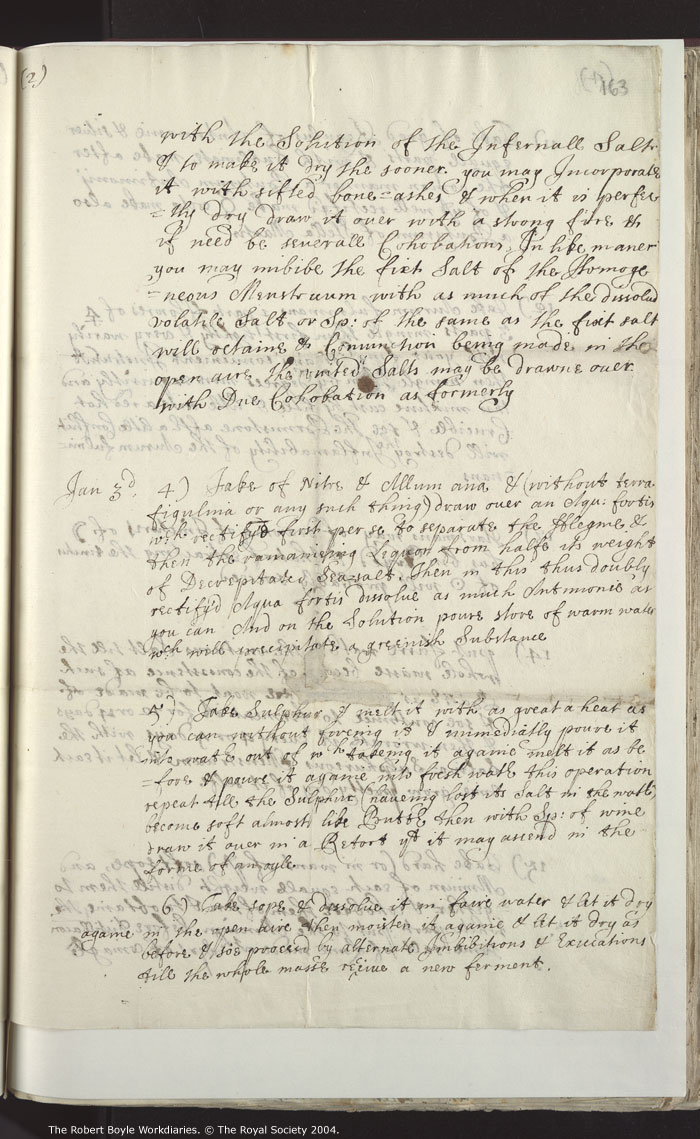 (2)
163
with the Solution of the Infernall Salt
& to make it dry the sooner you may Incorporate
it with sifted bone=ashes & when it is perfec
=tly dry draw it over with a strong fire &
if need be severall Cohobations. In like maner
you may imbibe the fixt Salt of the Homoge
=neous Menstruum with as much of the dissolud
volatile Salt or Sp: of the same as the fixt salt
will retaine & Coniunction being made in the
open aire the united Salts may be drawne over
with Due Cohobation as formerly
Jan 3d. 4) Take of Nitre & Allum ana & (without terra
figulina or any such thing) draw over an Aqu: fortis
wch rectify'd first per se to separate the fflegme &
then the remaineing Liquor from halfe its weight
of Decrepitated Sea=salt. Then in this thus doubly
rectify'd Aqua fortis dissolve as much Antimonie as
you can And on the Solution poure store of warm water
wch will precipitate a greenish Substance
5) Take Sulphur & melt it with as great a heat as
you can without fireing it & immediatly poure it
into water out of wch takeing it againe melt it as be
=fore & poure it againe into fresh water this operation
repeat till the Sulphur (haueing lost its Salt in the water)
become soft almost like Butter then with Sp: of wine
draw it over in a Retort yt it may ascend in the
forme of an oyle
6) Take sope & dissolve it in faire water & let it dry
againe in the open aire then moisten it againe & let it dry as
before & soe proceed by alternate Imbibitions & Exiccations
till the whole masse receive a new ferment.
The Robert Boyle Workdiaries. © The Royal Society 2004.